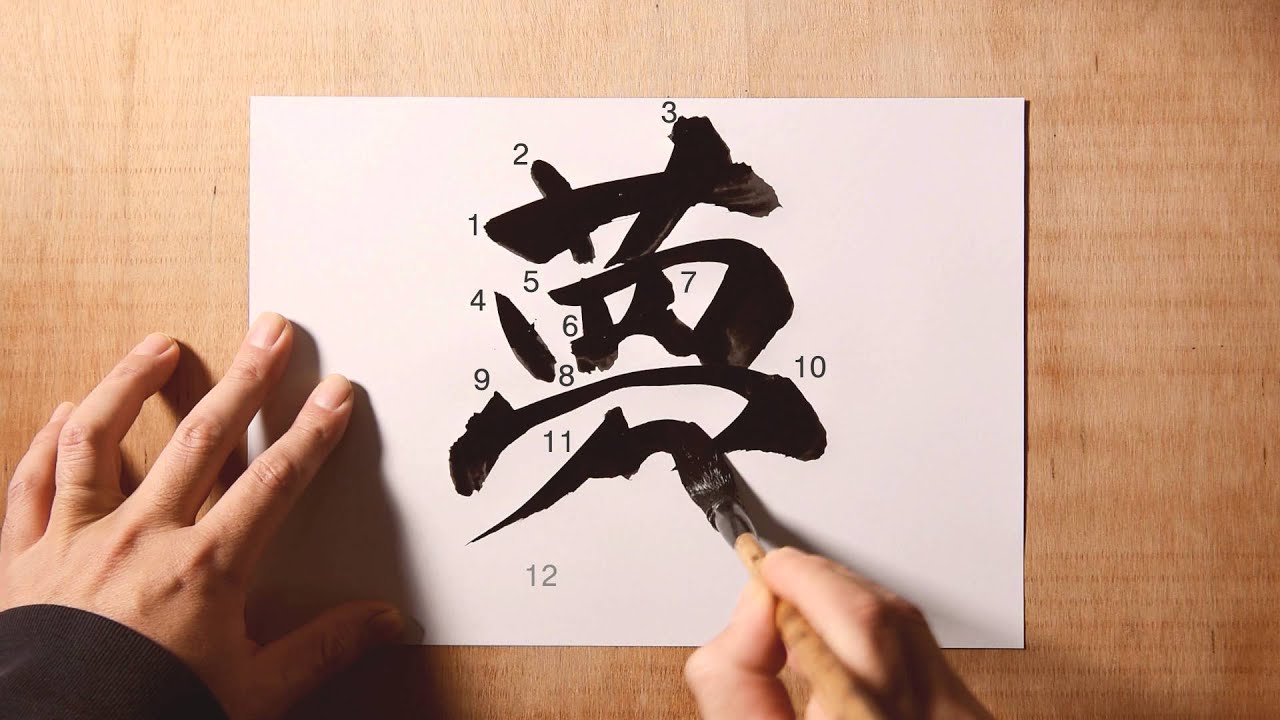 夢
1
2
3
4
5
6
7
8
9
10
11
12